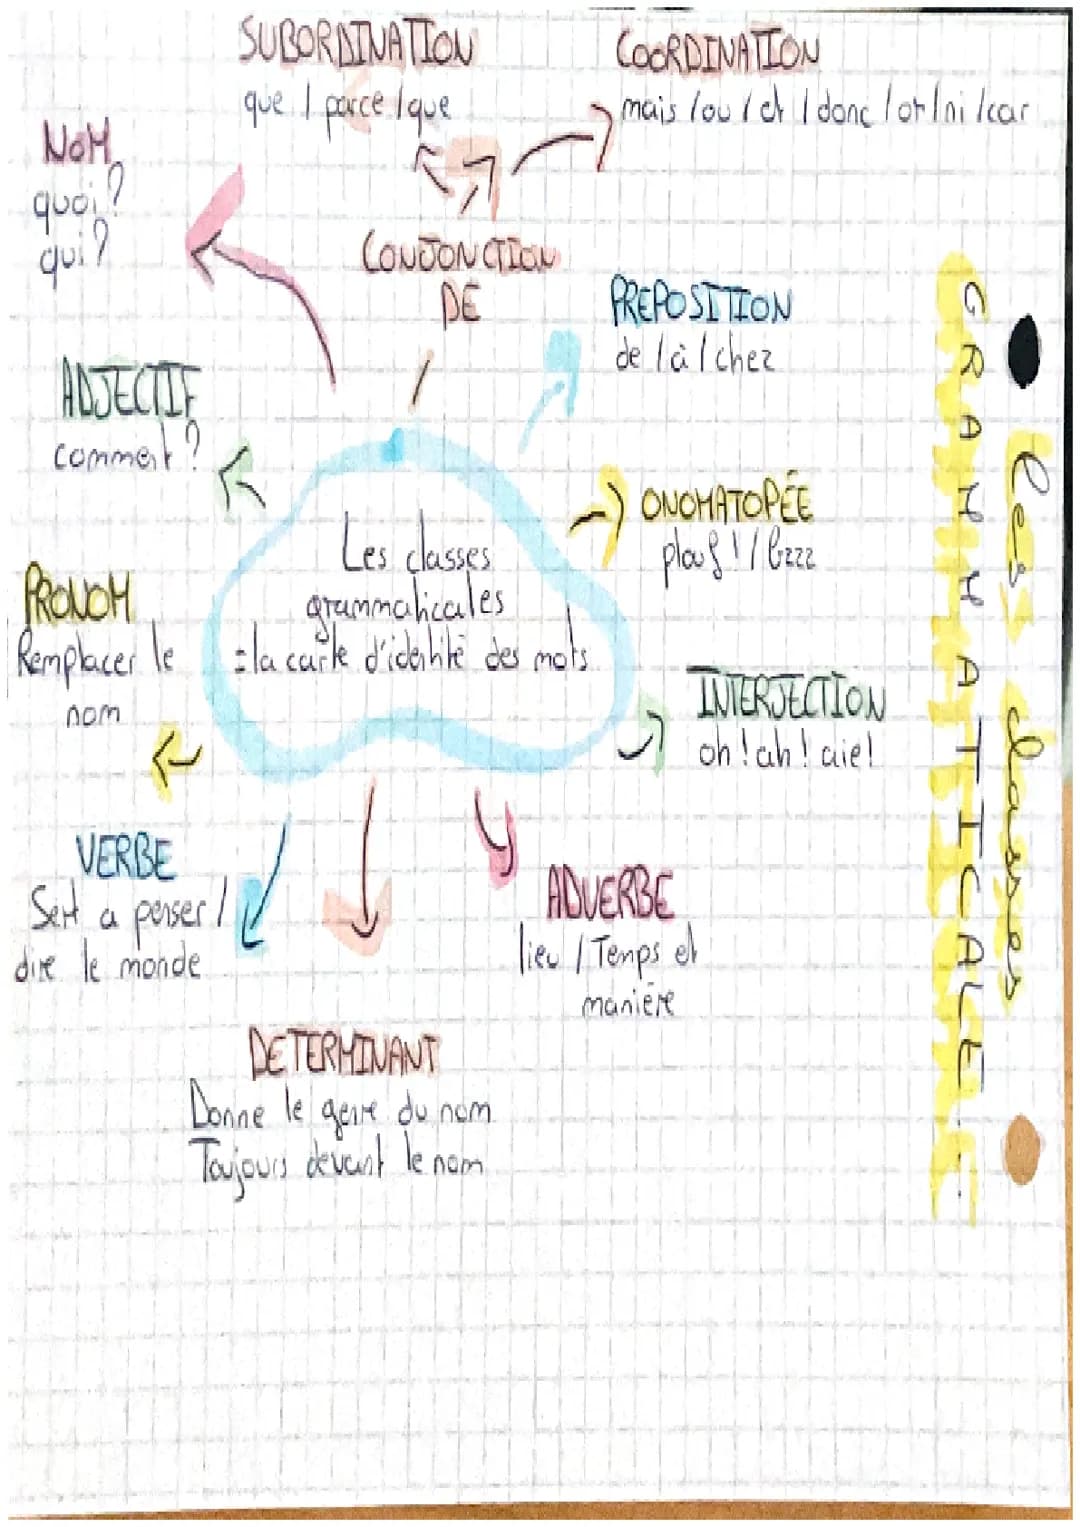 SUBORDINATION
que / parce / que
COORDINATION
mais / ou / et / donc / or / ni / car
NOM
quoi?
qui?
CONJONCTION
DE
PREPOSITION
de / à / chez
ADJECTIF
comment?
ONOMATOPÉE
plouf! / bzzz
Les classes
grammaticales
= la carte d'identité des mots
PRONOM
Remplacer le
nom
INTERJECTION
oh! ah! aie!
VERBE
Sert a penser /
dire le monde
ADVERBE
lieu / Temps et
manière
DETERMINANT
Donne le genre du nom
Toujours devant le nom
les classes
GRAMMATICALE